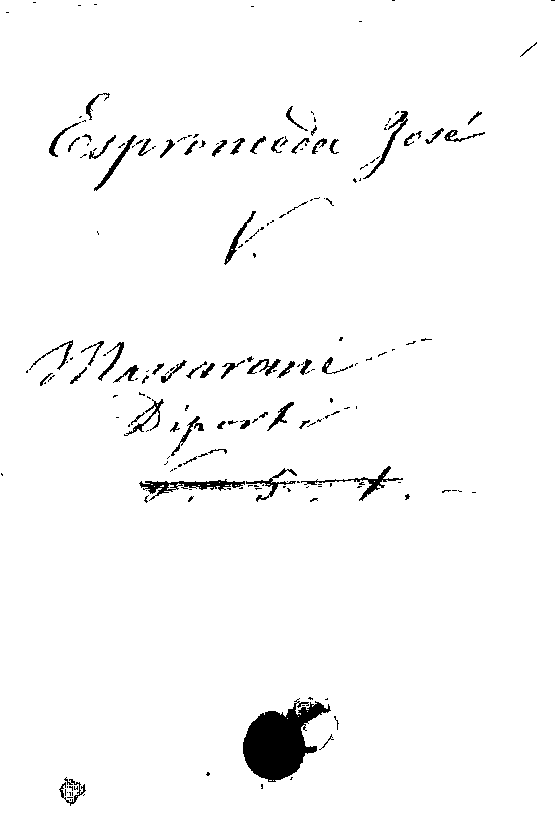 Espronceda José
V.
Massarani
Diporti
V. 5. 1. —